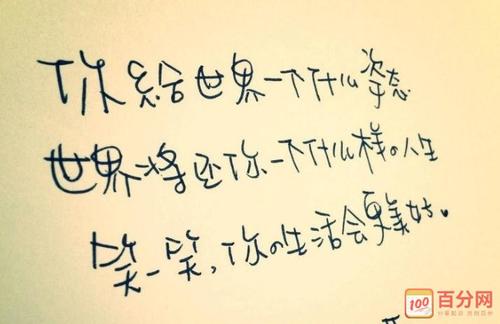 你給世界一个什么姿态
世界将还你一个什么样の人生
笑一笑，你の生活会更美好。
100
百分网